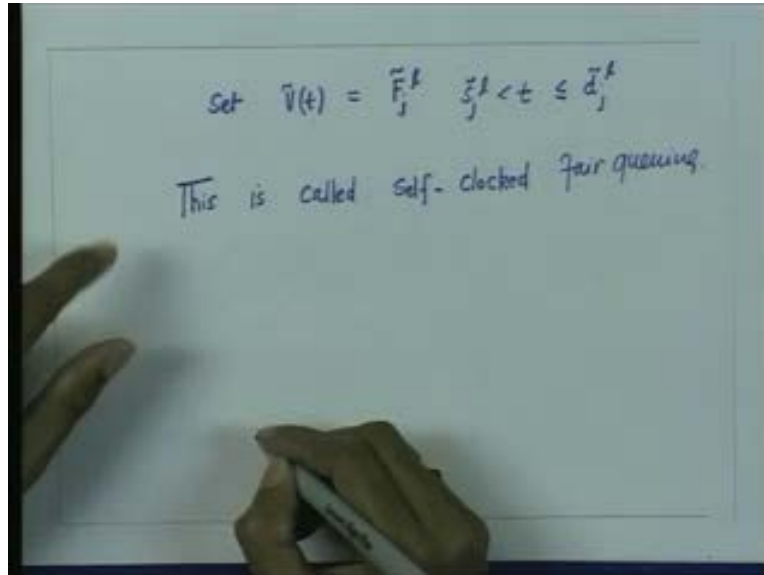 Set Ṽ(t) = F̃_j^l s̃_j^l < t ≤ d̃_j^l
This is called self-clocked fair queuing.